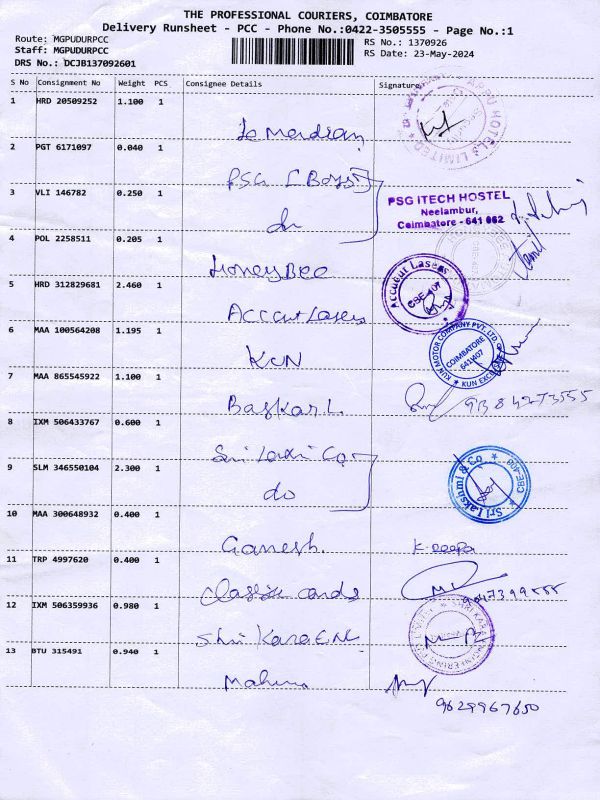 THE PROFESSIONAL COURIERS, COIMBATORE
Delivery Runsheet - PCC - Phone No.:0422-3505555 - Page No.:1
Route: MGPUDURPCC RS No.: 1370926
Staff: MGPUDURPCC RS Date: 23-May-2024
DRS No.: DCJB137092601
S No Consignment No Weight PCS Consignee Details Signature
1 HRD 20509252 1.100 1
HOTELS LIMITED
Le Meridian
2 PGT 6171097 0.040 1
PSG [Boys]
3 VLI 146782 0.250 1
PSG ITECH HOSTEL
Neelambur,
Coimbatore - 641 062
do
4 POL 2258511 0.205 1
HoneyBee
5 HRD 312829681 2.460 1
Accucut Lasers
CBE-407
Accut Lasers
6 MAA 100564208 1.195 1
KUN MOTOR COMPANY PVT. LTD
COIMBATORE
641 407
KUN EXCLUSIVE
KUN
7 MAA 865545922 1.100 1
Baskar L.
8 IXM 506433767 0.600 1
Sri Laxi Co
9 SLM 346550104 2.300 1
Sri Lakshmi & Co
CBE-400
do
10 MAA 300648932 0.400 1
Ganesh. K. Deepa
11 TRP 4997620 0.400 1
Classic cards
9047399555
12 IXM 506359936 0.980 1
Shri Kara ENC
13 BTU 315491 0.940 1
9629967650